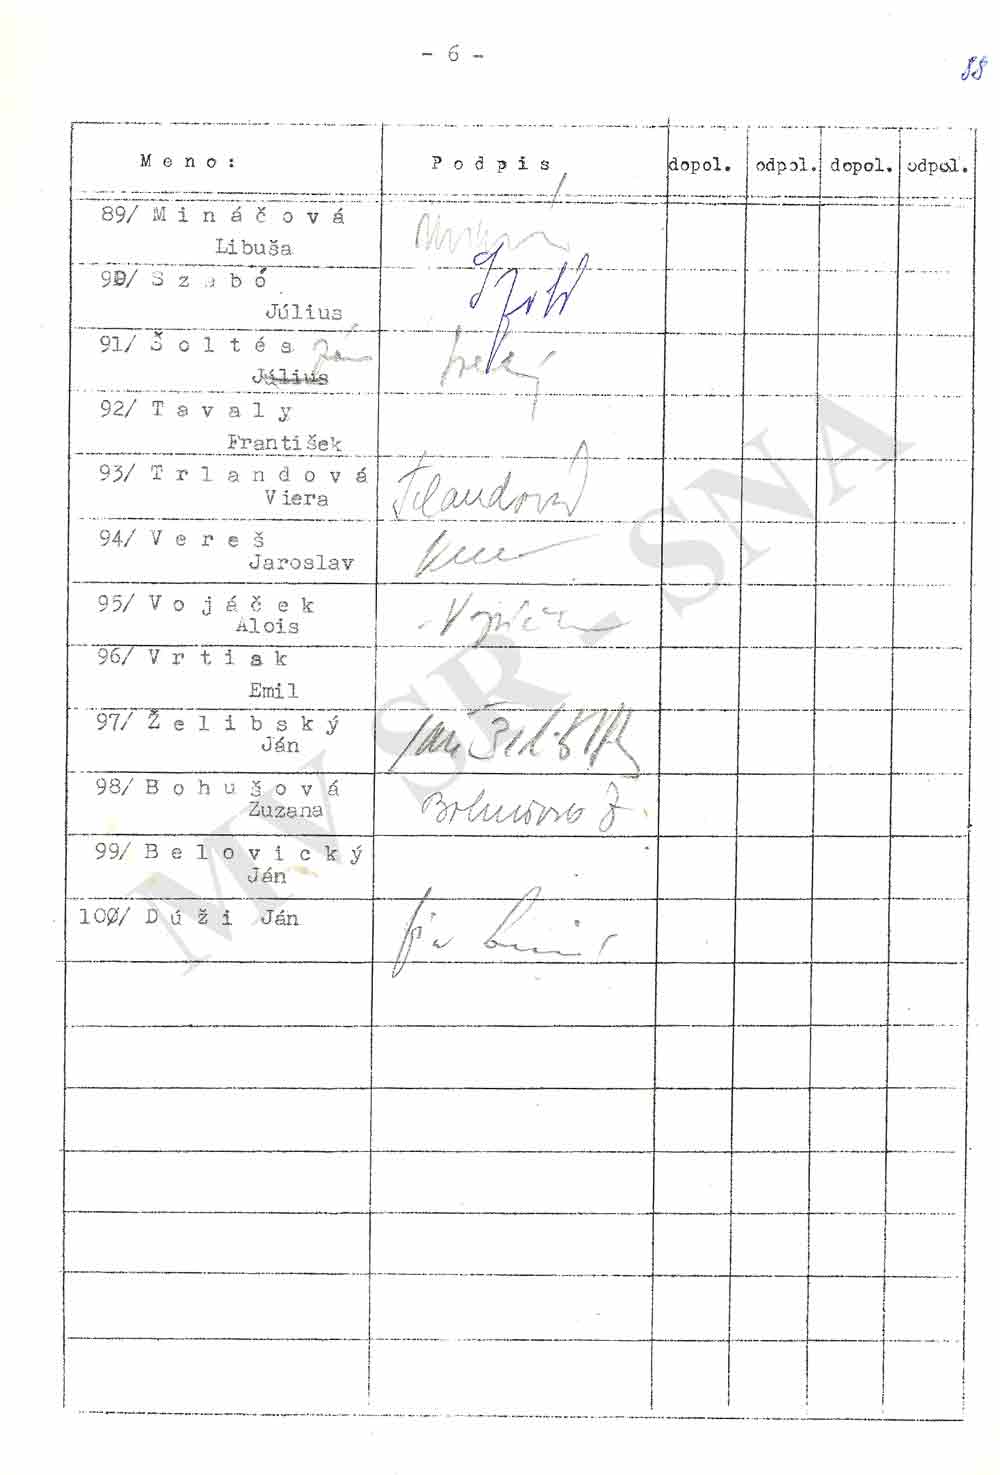 - 6 -
88
M e n o : P o d p i s dopol. odpol. dopol. odpol.
89/ M i n á č o v á
Libuša
90/ S z a b ó
Július
91/ Š o l t é s Ján
Július
92/ T a v a l y
František
93/ T r l a n d o v á
Viera
Trlandová
94/ V e r e š
Jaroslav
95/ V o j á č e k
Alois
96/ V r t i a k
Emil
97/ Ž e l i b s k ý
Ján
98/ B o h u š o v á
Zuzana
Bohušová Z.
99/ B e l o v i c k ý
Ján
100/ D ú ž i Ján
MV SR - SNA